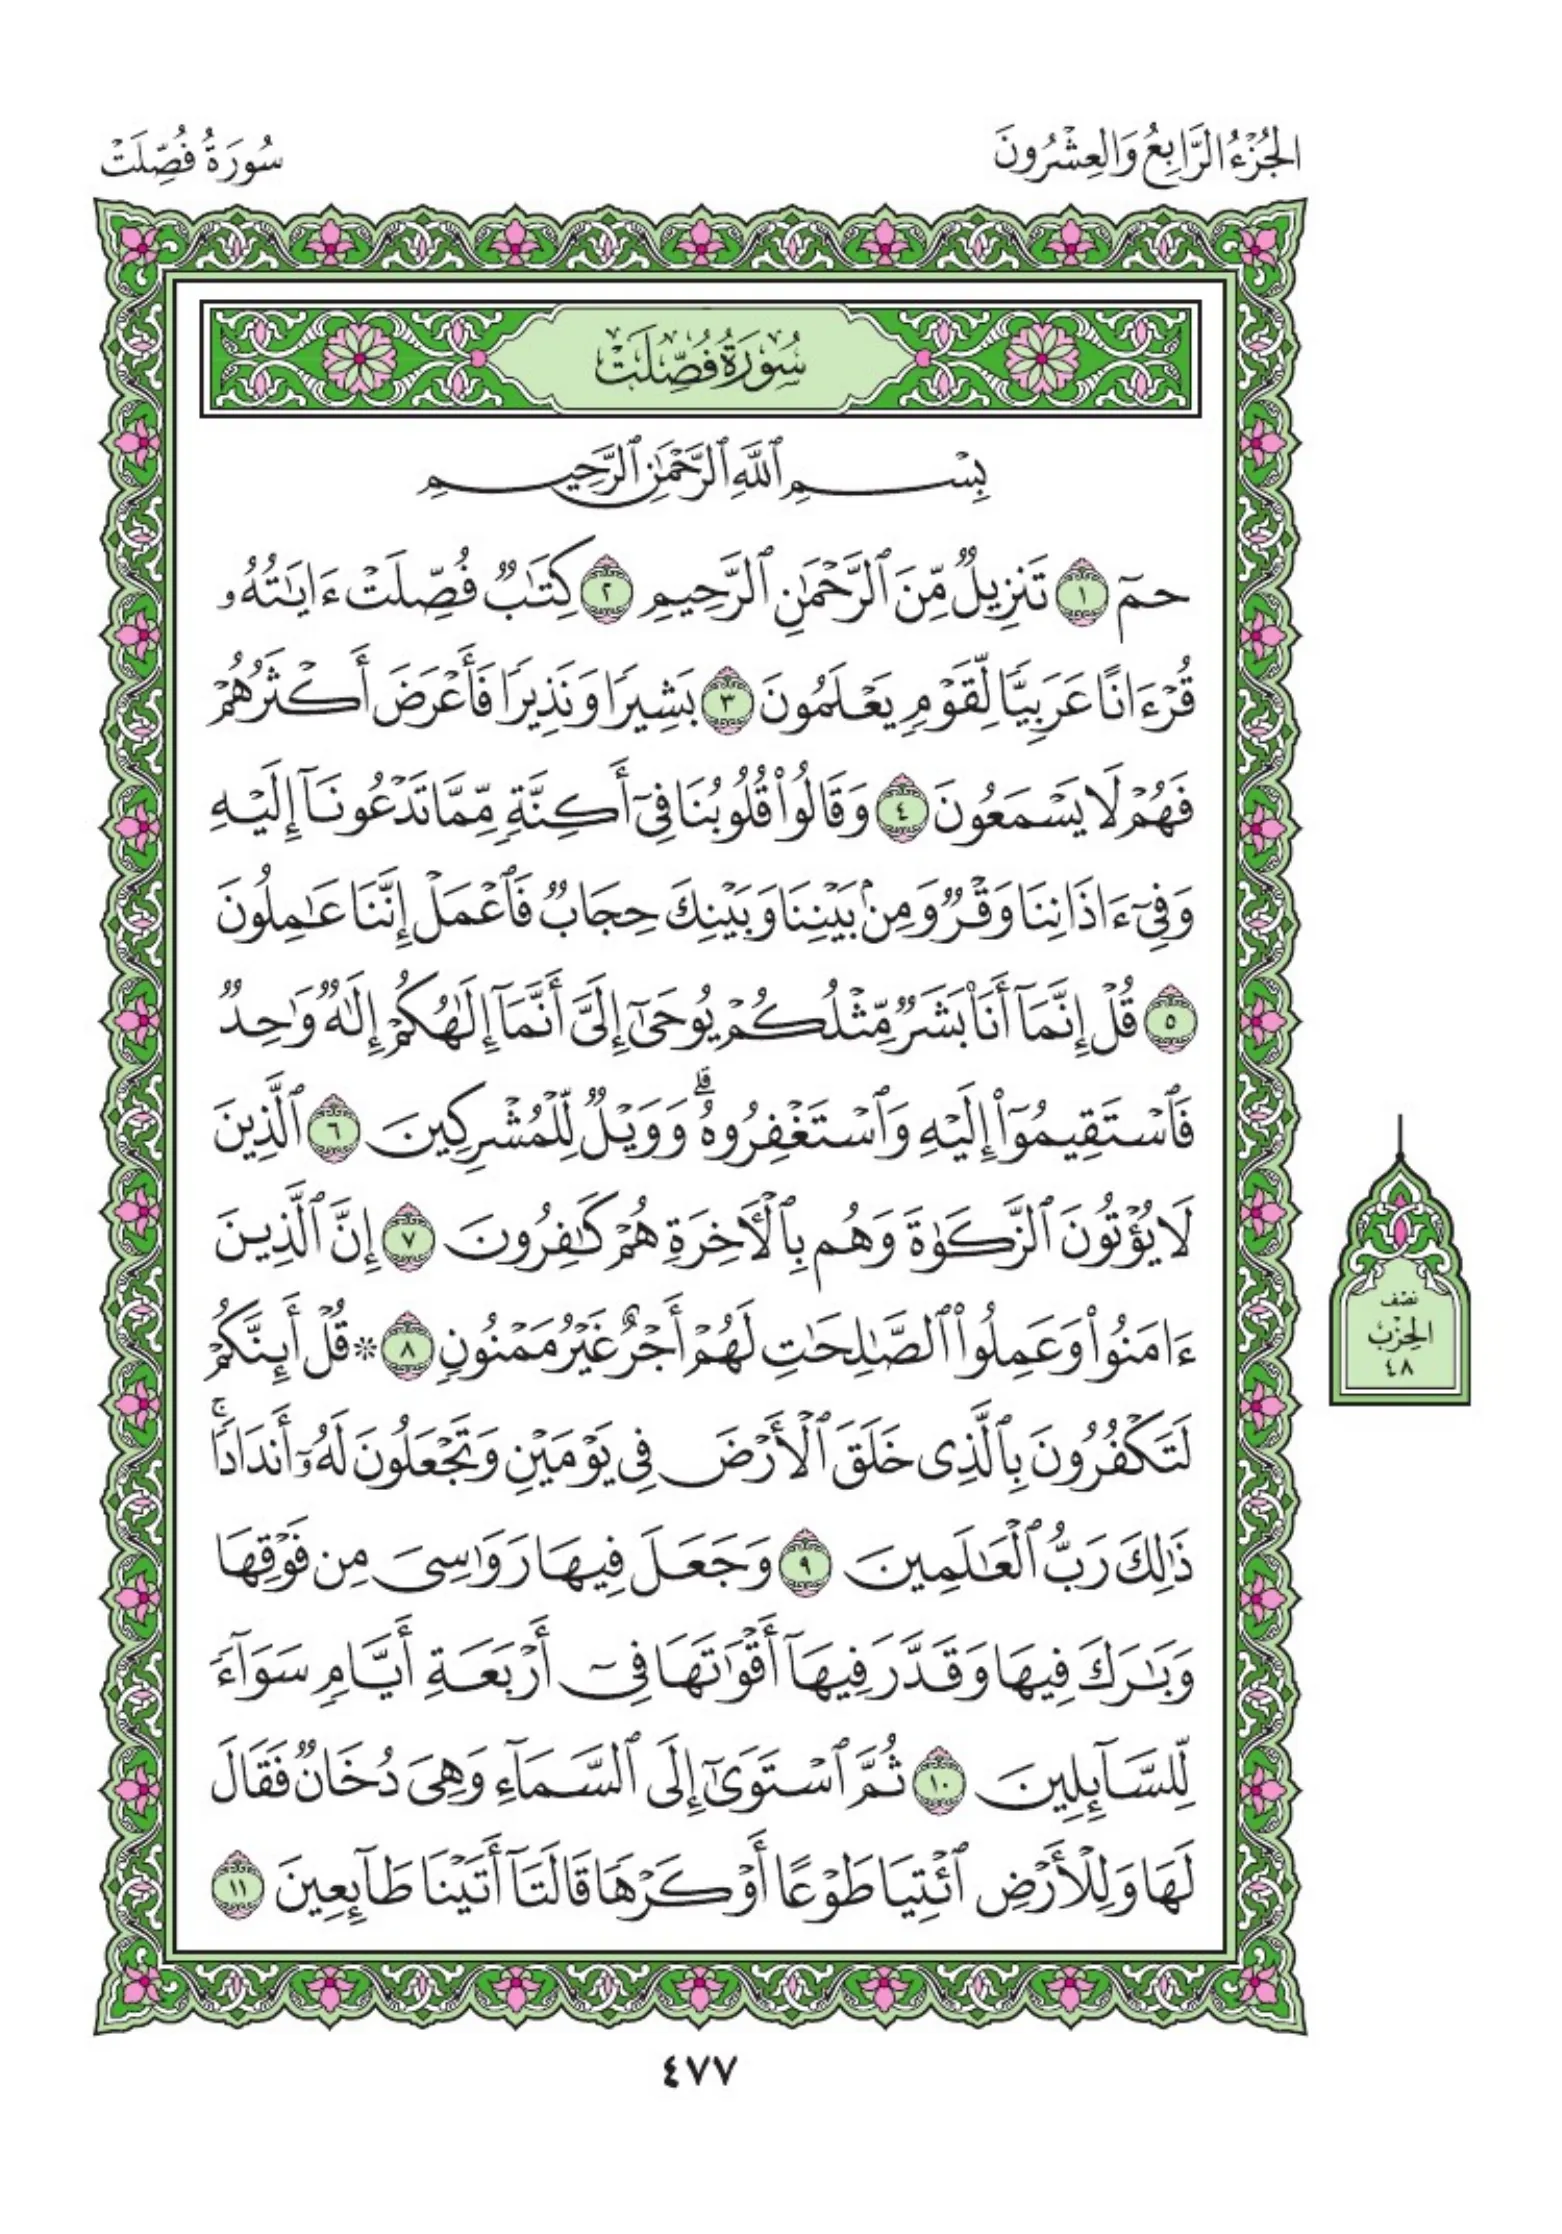 الجُزْءُ الرَّابِعُ وَالعِشْرُونَ
سُورَةُ فُصِّلَتْ
سُورَةُ فُصِّلَتْ
بِسْمِ ٱللَّهِ ٱلرَّحْمَٰنِ ٱلرَّحِيمِ
حمٓ ١ تَنزِيلٌ مِّنَ ٱلرَّحْمَٰنِ ٱلرَّحِيمِ ٢ كِتَٰبٌ فُصِّلَتْ ءَايَٰتُهُۥ
قُرْءَانًا عَرَبِيًّا لِّقَوْمٍ يَعْلَمُونَ ٣ بَشِيرًا وَنَذِيرًا فَأَعْرَضَ أَكْثَرُهُمْ
فَهُمْ لَا يَسْمَعُونَ ٤ وَقَالُوا۟ قُلُوبُنَا فِىٓ أَكِنَّةٍ مِّمَّا تَدْعُونَآ إِلَيْهِ
وَفِىٓ ءَاذَانِنَا وَقْرٌ وَمِنۢ بَيْنِنَا وَبَيْنِكَ حِجَابٌ فَٱعْمَلْ إِنَّنَا عَٰمِلُونَ
٥ قُلْ إِنَّمَآ أَنَا۠ بَشَرٌ مِّثْلُكُمْ يُوحَىٰٓ إِلَىَّ أَنَّمَآ إِلَٰهُكُمْ إِلَٰهٌ وَٰحِدٌ
فَٱسْتَقِيمُوٓا۟ إِلَيْهِ وَٱسْتَغْفِرُوهُۗ وَوَيْلٌ لِّلْمُشْرِكِينَ ٦ ٱلَّذِينَ
لَا يُؤْتُونَ ٱلزَّكَوٰةَ وَهُم بِٱلْـَٔاخِرَةِ هُمْ كَٰفِرُونَ ٧ إِنَّ ٱلَّذِينَ
ءَامَنُوا۟ وَعَمِلُوا۟ ٱلصَّٰلِحَٰتِ لَهُمْ أَجْرٌ غَيْرُ مَمْنُونٍ ٨ * قُلْ أَئِنَّكُمْ
لَتَكْفُرُونَ بِٱلَّذِى خَلَقَ ٱلْأَرْضَ فِى يَوْمَيْنِ وَتَجْعَلُونَ لَهُۥٓ أَندَادًاۚ
ذَٰلِكَ رَبُّ ٱلْعَٰلَمِينَ ٩ وَجَعَلَ فِيهَا رَوَٰسِىَ مِن فَوْقِهَا
وَبَٰرَكَ فِيهَا وَقَدَّرَ فِيهَآ أَقْوَٰتَهَا فِىٓ أَرْبَعَةِ أَيَّامٍ سَوَآءً
لِّلسَّآئِلِينَ ١٠ ثُمَّ ٱسْتَوَىٰٓ إِلَى ٱلسَّمَآءِ وَهِىَ دُخَانٌ فَقَالَ
لَهَا وَلِلْأَرْضِ ٱئْتِيَا طَوْعًا أَوْ كَرْهًا قَالَتَآ أَتَيْنَا طَآئِعِينَ ١١
نصْف
الحِزْب
٤٨
٤٧٧